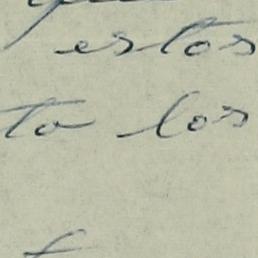 estos
to los